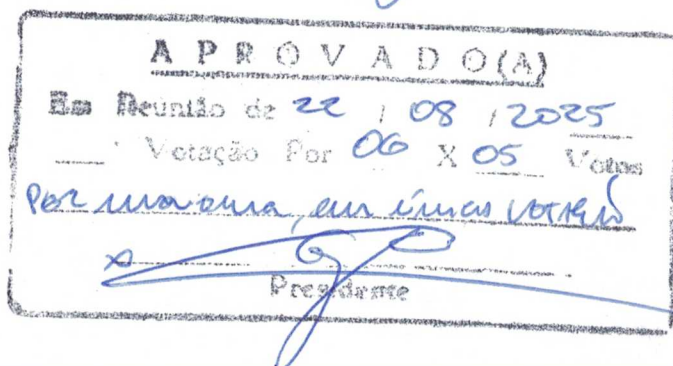 APROVADO(A)
Em Reunião de 22 / 08 / 2025
Votação Por 06 X 05 Votos
Por maioria, em única votação
Presidente